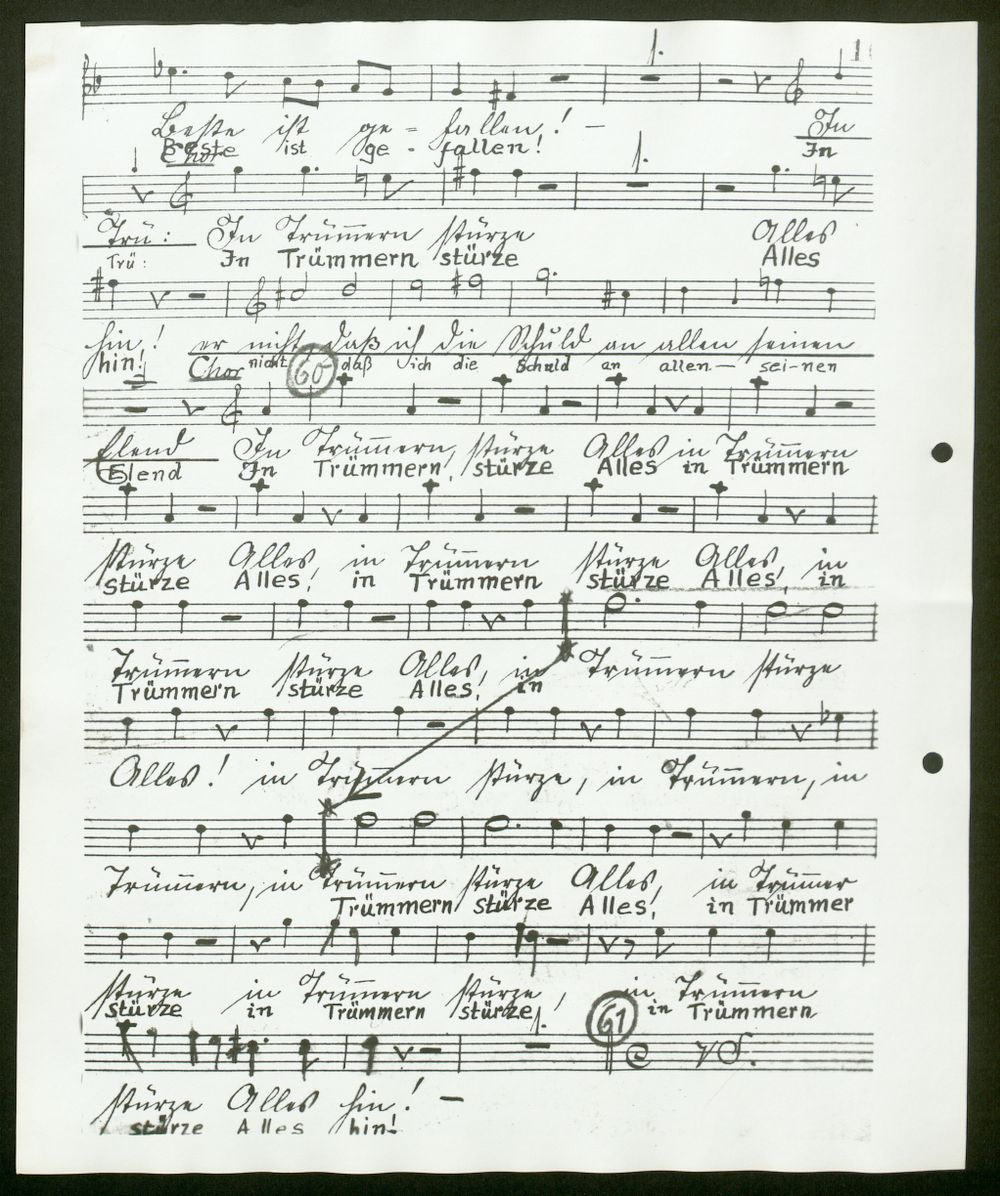 1.
Beste ist ge = fallen! –
Beste ist ge - fallen!
In
In
Chor
1.
Trü: In Trümmern stürze Alles
Trü: In Trümmern stürze Alles
hin! er nicht daß ich die Schuld an allen seinen
hin! Chor nicht daß ich die Schuld an allen — sei-nen
60
Elend In Trümmern, stürze Alles in Trümmern
Elend In Trümmern, stürze Alles in Trümmern
stürze Alles, in Trümmern stürze Alles, in
stürze Alles! in Trümmern stürze Alles, in
Trümmern stürze Alles, in Trümmern stürze
Trümmern stürze Alles, in
Alles! in Trümmern stürze, in Trümmern, in
Trümmern, in Trümmern stürze Alles, in Trümmer
Trümmern stürze Alles, in Trümmer
stürze in Trümmern stürze, in Trümmern
stürze in Trümmern stürze, in Trümmern
1.
61
VS.
stürze Alles hin! –
stürze Alles hin!